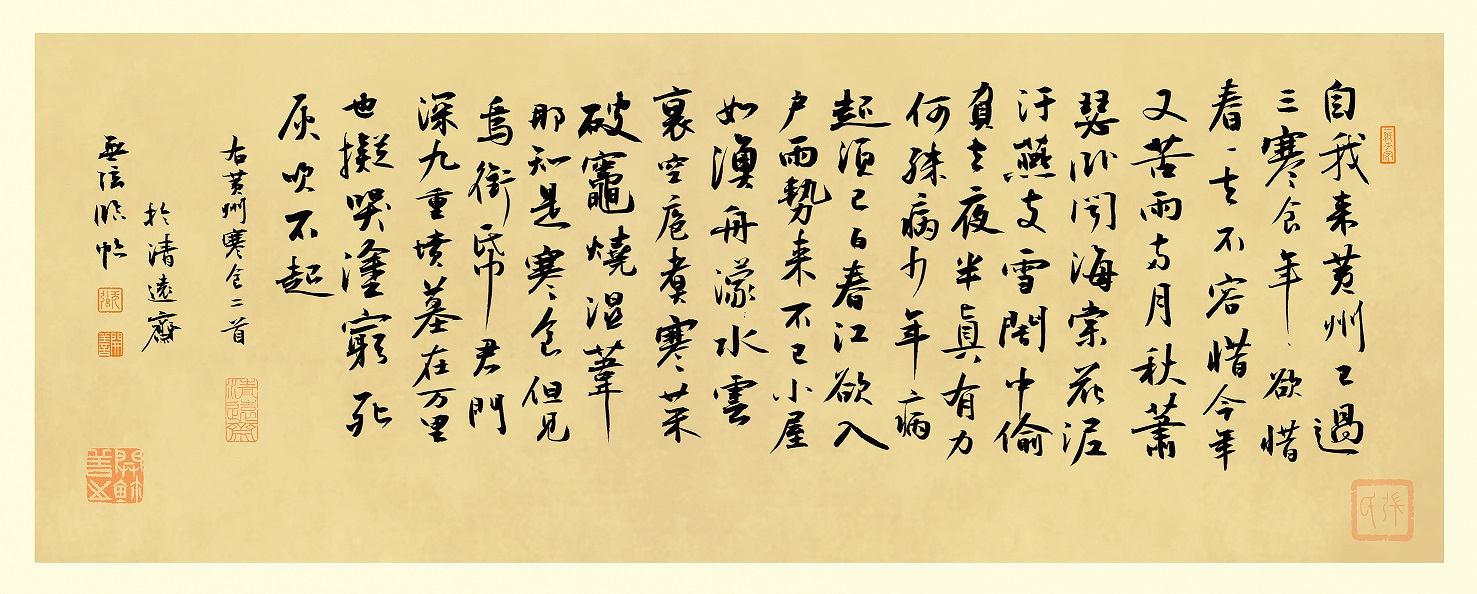 自我来黄州已過
三寒食年〻欲惜
春〻去不容惜今年
又苦雨两月秋蕭
瑟卧聞海棠花泥
汙燕支雪闇中偷
負去夜半眞有力
何殊病少年病
起須已白春江欲入
户雨勢来不已小屋
如漁舟濛〻水雲
裏空庖煮寒菜
破竈燒湿葦
那知是寒食但見
烏銜帋君門
深九重墳墓在万里
也擬哭塗窮死
灰吹不起
右黄州寒食二首
於清遠齋
無弦臨帖
清遠齋
張氏